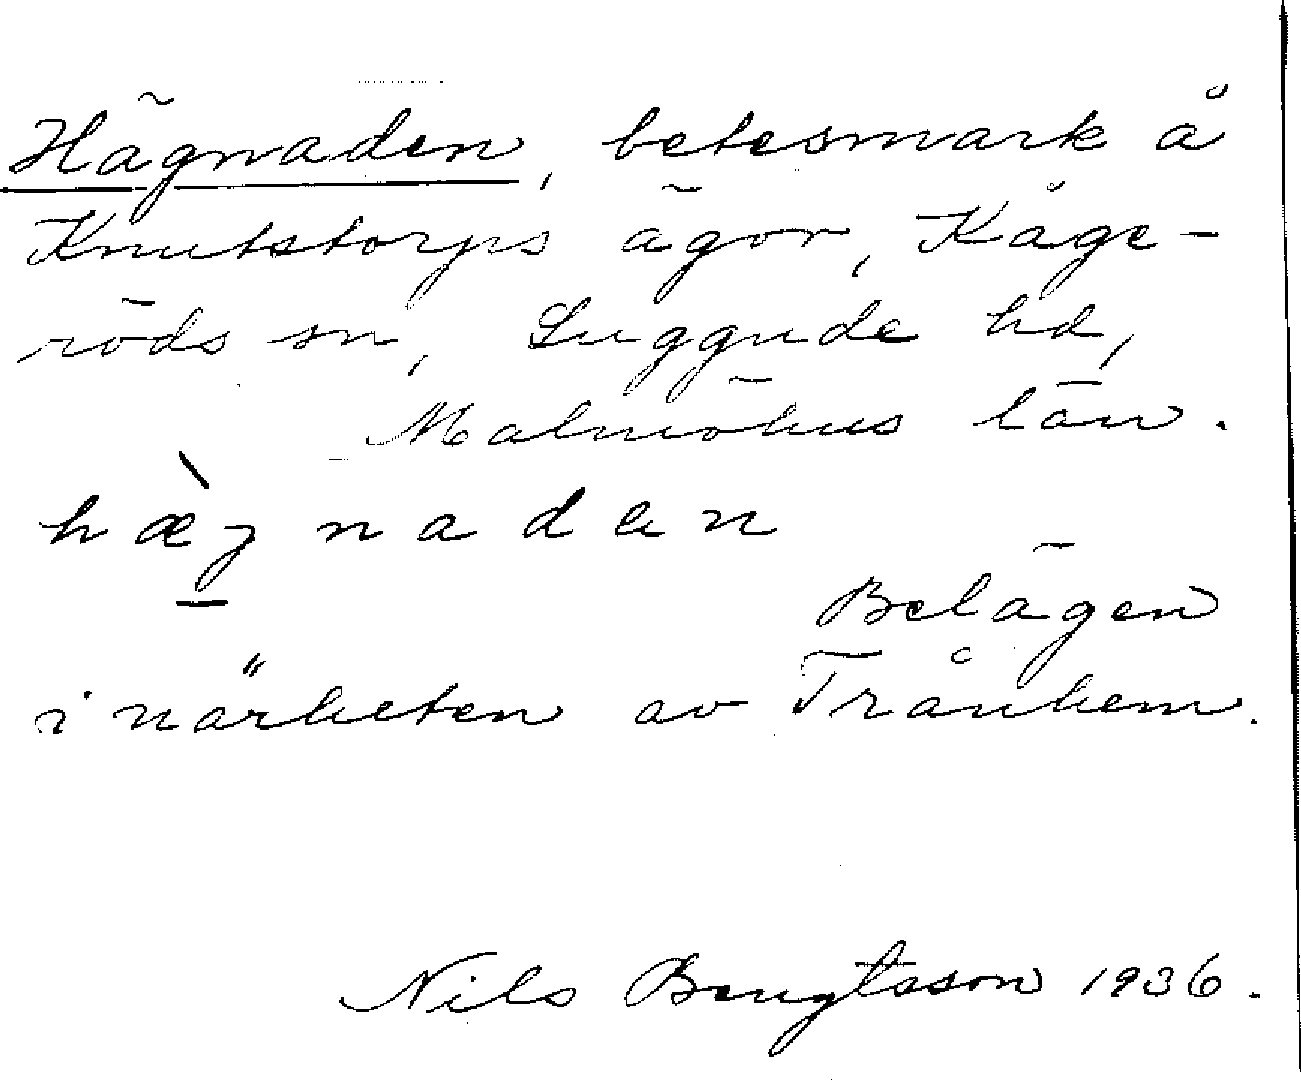 Hägnaden, betesmark å
Knutstorps ägor, Kåge-
röds sn, Luggude hd,
Malmöhus län.
hæ̀ɡnadan
Belägen
i närheten av Trånhem.
Nils Bengtsson 1936.